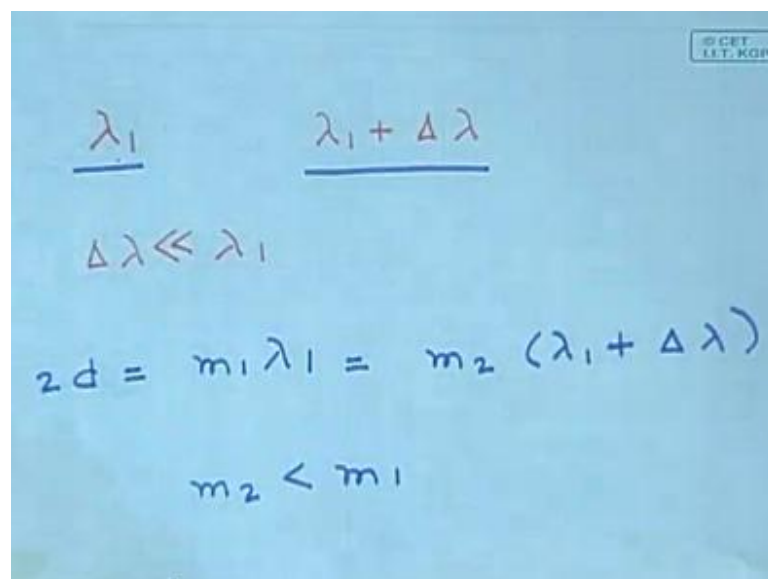 © CET
I.I.T. KGP
λ₁ λ₁ + Δλ
Δλ << λ₁
2d = m₁λ₁ = m₂ (λ₁ + Δλ)
m₂ < m₁